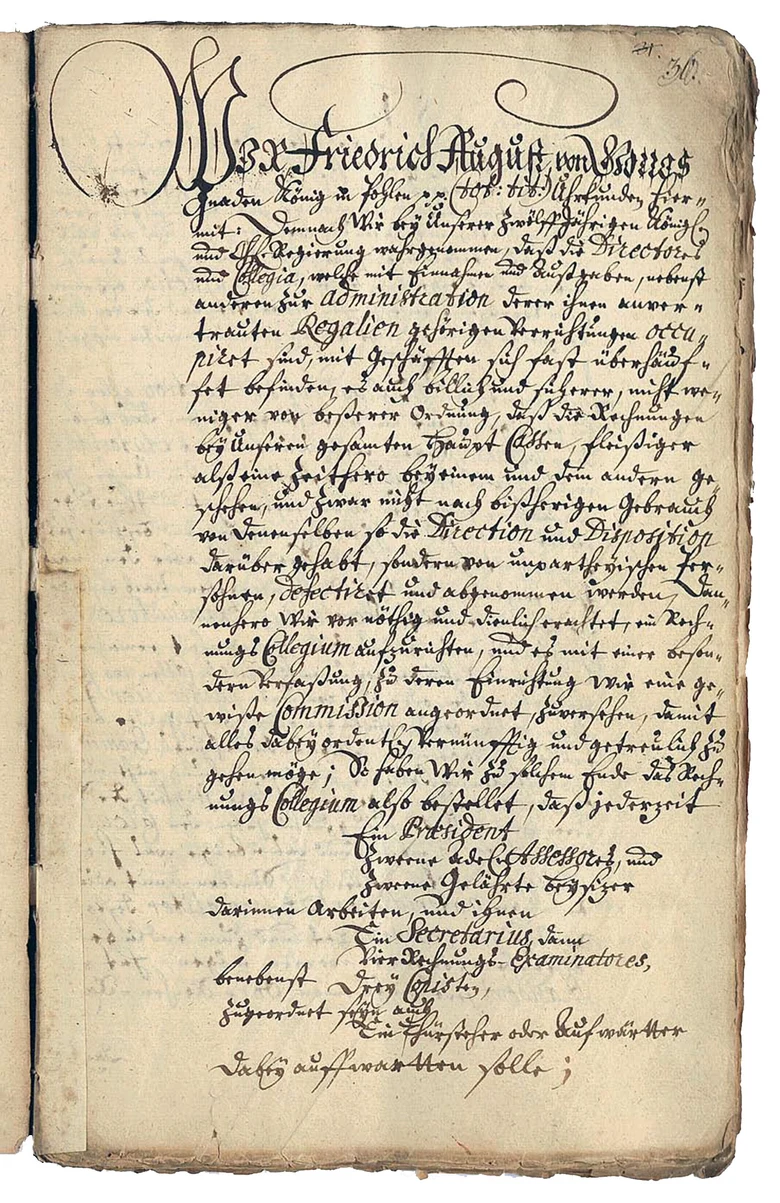 21.
36.
Wir Friedrich August, von Gottes
Gnaden König in Pohlen pp. (tot: tit:) Uhrkunden hier-
mit: Demnach Wir bey Unserer Zwölff Jährigen Königl.
und Chfl. Regierung wahrgenommen, daß die Directores
und Collegia, welche mit Einnahmen und Außgaben, nebenst
anderen zur administration derer ihnen anver-
trauten Regalien gehörigen Verrichtungen occu-
piret sind, mit Geschäfften sich fast überhäuf-
fet befinden, es auch billich und sicherer, nicht we-
niger von beßerer Ordnung, daß die Rechnungen
bey Unseren gesamten Haupt Cassen, fleißiger
alß eine Zeithero bey einem und dem andern ge-
schehen, und zwar nicht nach bißherigen Gebrauch
von denenselben so die Direction und Disposition
darüber gehabt, sondern von unpartheyischen Per-
sohnen, defectiret und abgenommen werden, Dan-
nenhero Wir vor nöthig und dienlich erachtet, ein Rech-
nungs Collegium aufzurichten, und es mit einer beson-
dern Verfaßung, zu deren Einrichtung Wir eine ge-
wiße Commission angeordnet, zuversehen, damit
alles dabey ordentl. vernünfftig und getreulich zu
gehen möge; So haben Wir zu solchem Ende das Rech-
nungs Collegium also bestellet, daß jederzeit
Ein Præsident
Zweene Adel. Assessores, und
Zweene Gelährte beysizer
darinnen Arbeiten, und ihnen
Ein Secretarius, dann
Vier Rechnungs-Examinatores,
benebenst Drey Copisten,
zugeordnet seyn auch
Ein Thürsteher oder Aufwärtter
dabey auffwartten solle;